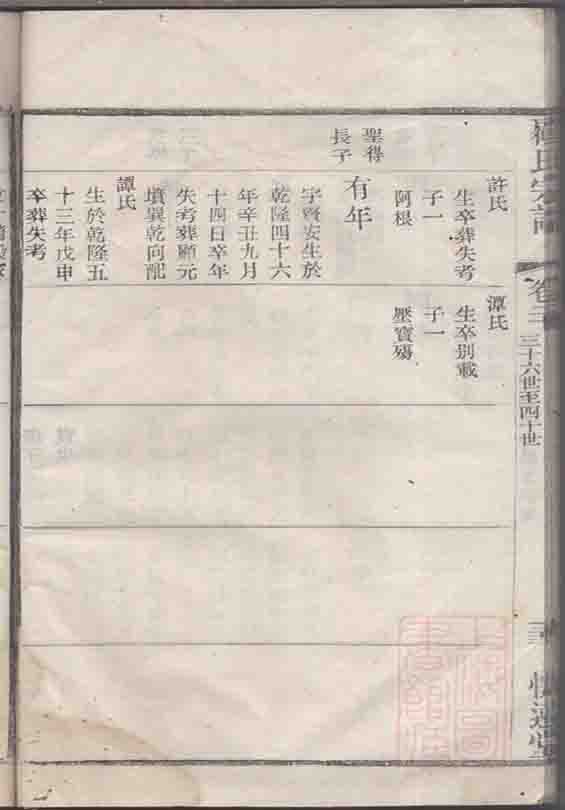 氏宗譜
卷三
三十六世至四十世
許氏
生卒葬失考
子一
阿根
聖得
長子
有年
字賢安生於
乾隆四十六
年辛丑九月
十四日卒年
失考葬顧元
墳巽乾向配
譚氏
生於乾隆五
十三年戊申
卒葬失考
潭氏
生卒別載
子一
壓寶殤
上海圖
書館藏